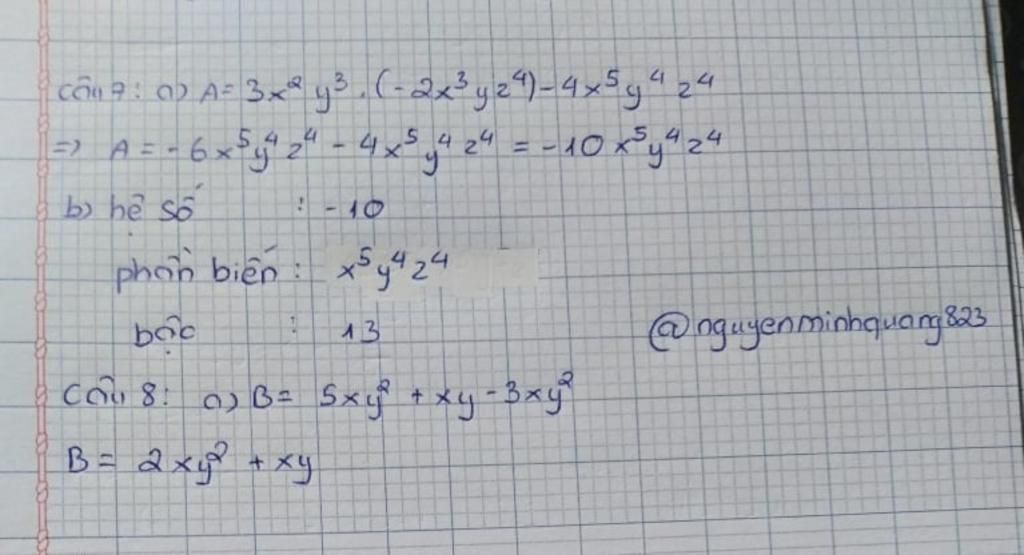 Câu 7: a) A = 3x² y³ . (-2x³yz⁴) - 4x⁵y⁴z⁴
=> A = -6x⁵y⁴z⁴ - 4x⁵y⁴z⁴ = -10x⁵y⁴z⁴
b) hệ số : -10
phần biến : x⁵y⁴z⁴
bậc : 13
@nguyenminhquang823
Câu 8: a) B = 5xy² + xy - 3xy²
B = 2xy² + xy